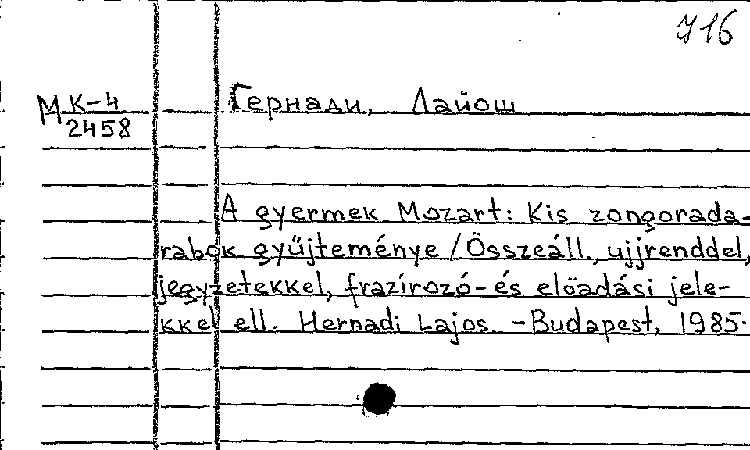 716
М К-4
2458
Гернади, Лайош
A gyermek Mozart: Kis zongorada-
rabok gyűjteménye / Összeáll., ujjrenddel,
jegyzetekkel, frazírozó- és elöadási jele-
kkel ell. Hernadi Lajos. - Budapest, 1985.